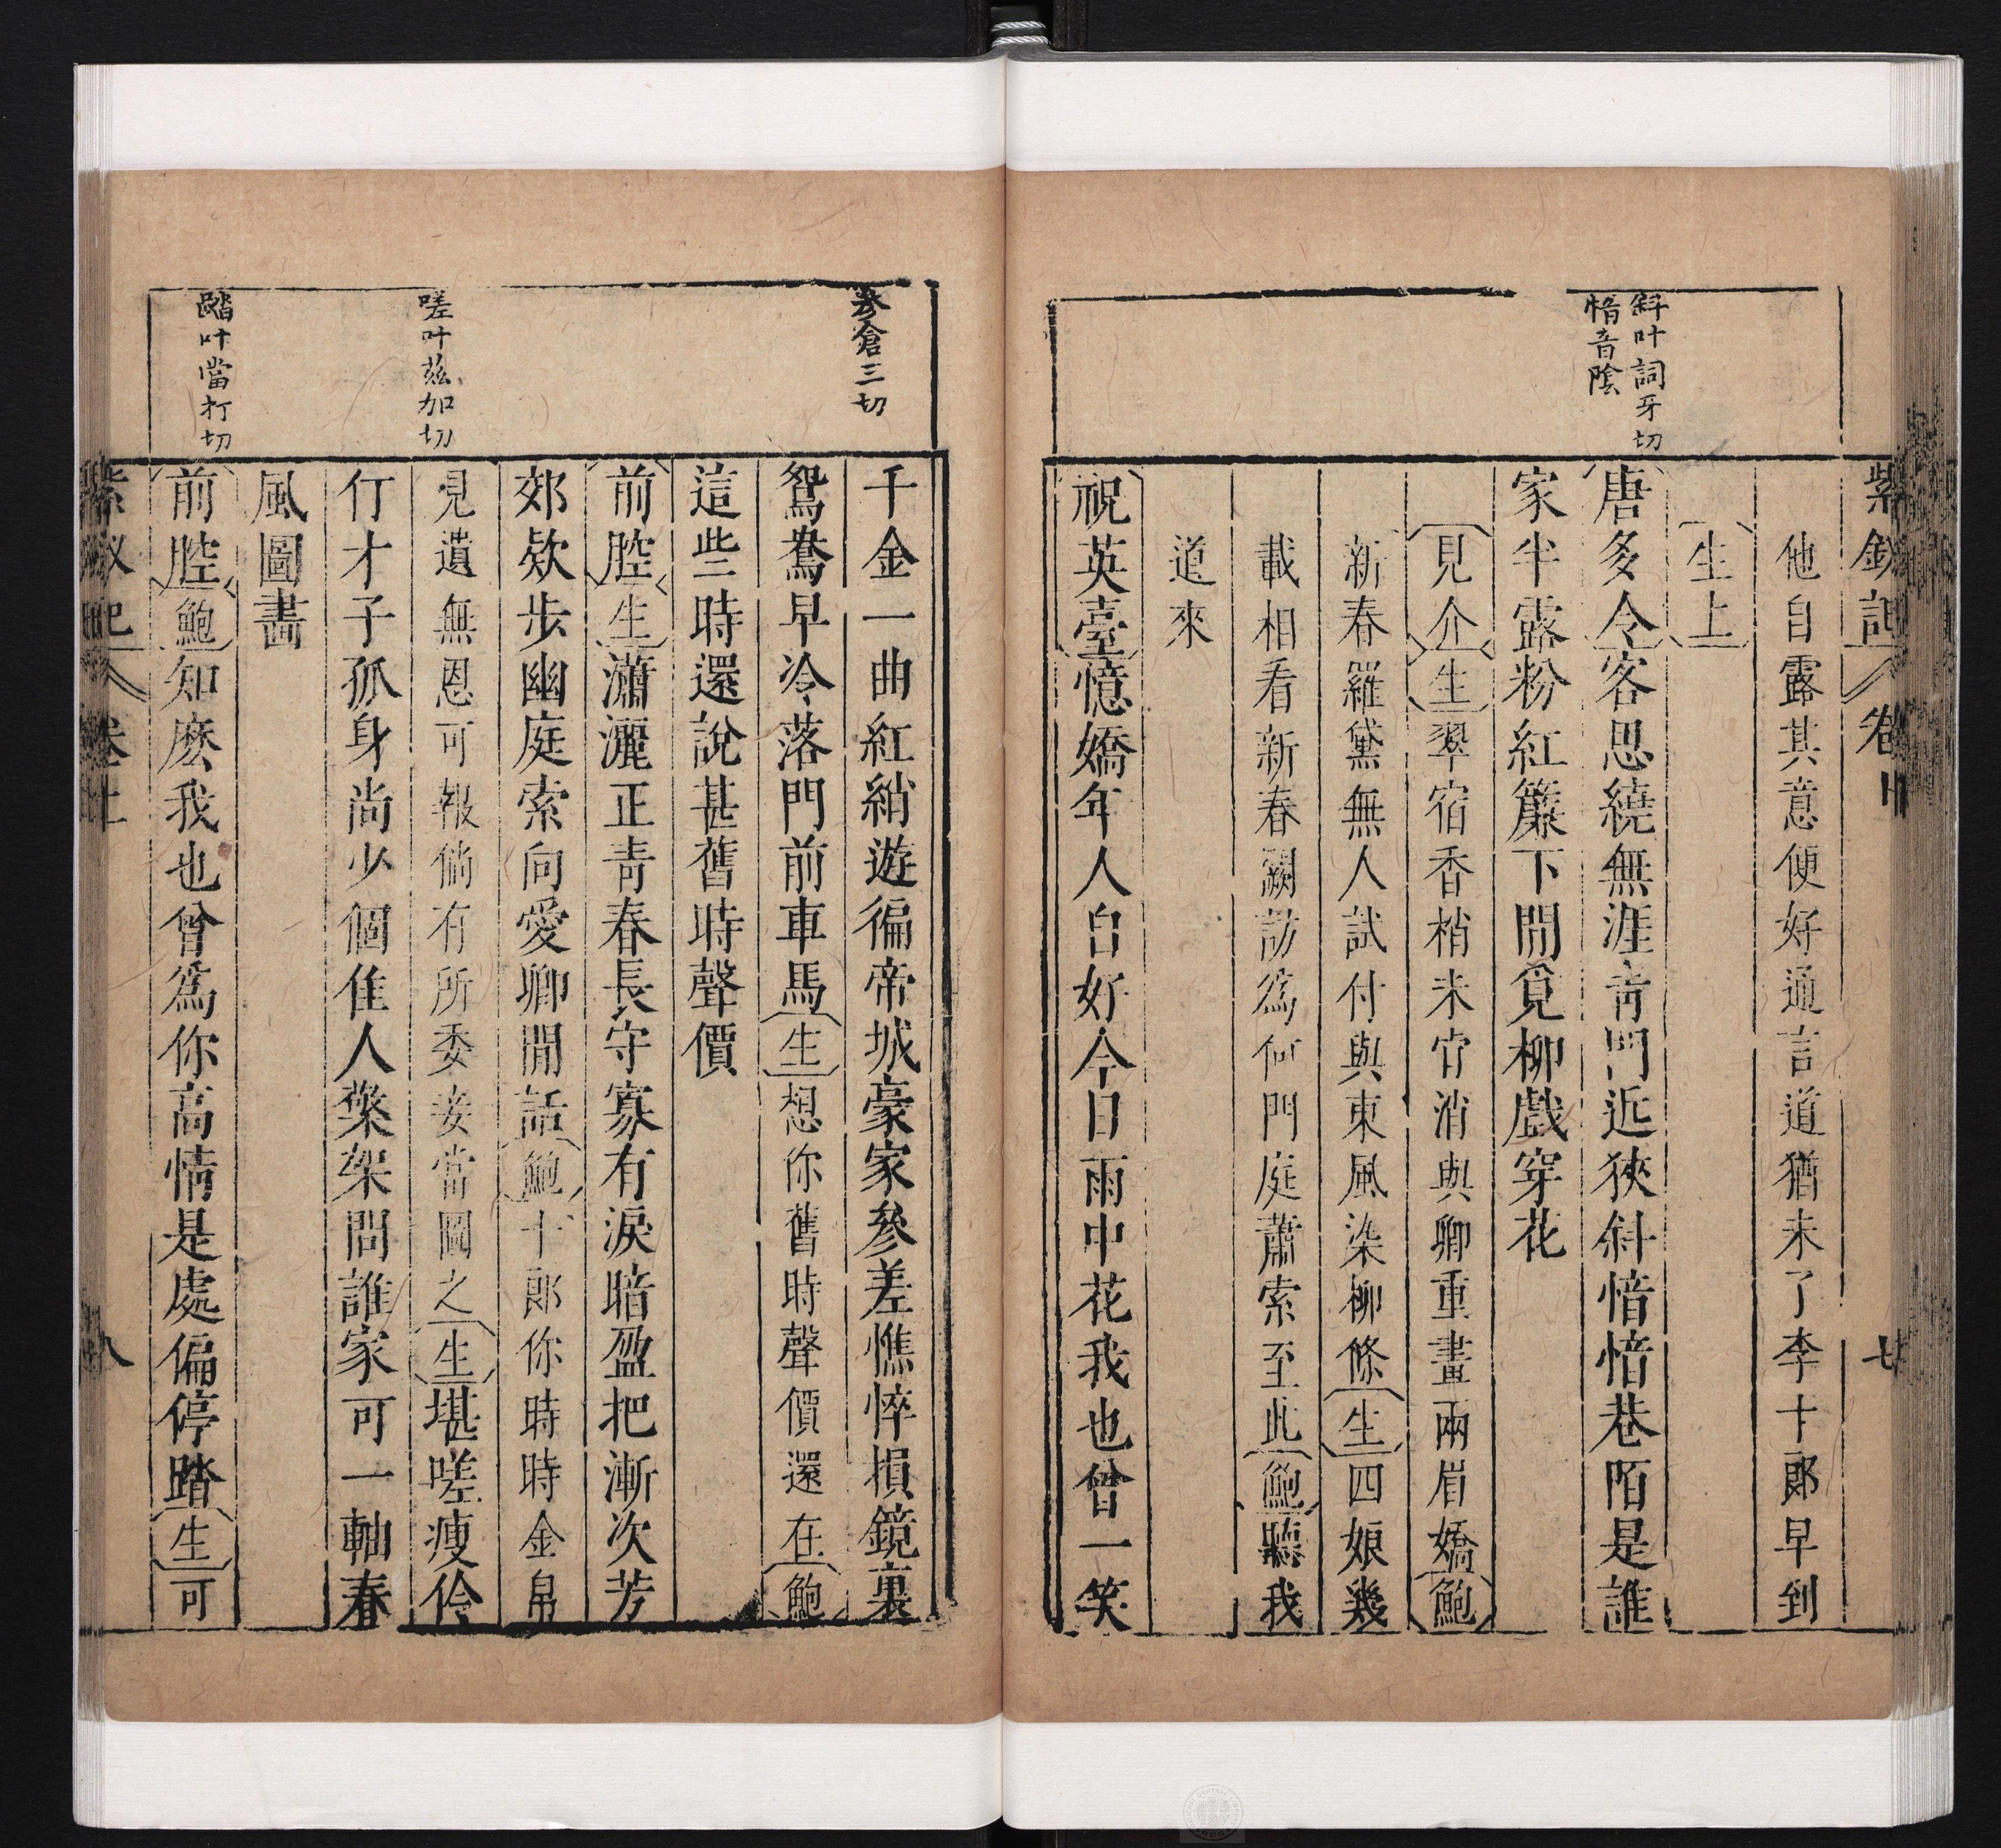 紫釵記 卷上 七
斜叶詞牙切
愔音陰
他自露其意便好通言道猶未了李十郎早到
生上
唐多令客思繞無涯青門近狹斜愔愔巷陌是誰
家半露粉紅簾下閒覓柳戲穿花
見介生翠宿香梢未肯消與卿重畫兩眉嬌鮑
新春羅黛無人試付與東風染柳條生四娘幾
載相看新春闕訪爲何門庭蕭索至此鮑聽我
道來
祝英臺憶嬌年人自好今日雨中花我也曾一笑
參倉三切
嗟叶茲加切
踏叶當打切
千金一曲紅綃遊徧帝城豪家參差憔悴損鏡裏
鴛鴦早冷落門前車馬生想你舊時聲價還在鮑
這些時還說甚舊時聲價
前腔生瀟灑正青春長守寡有淚暗盈把漸次芳
郊欸步幽庭索向愛卿閒話鮑十郎你時時金帛
見遺無恩可報倘有所委妾當圖之生堪嗟瘦伶
仃才子孤身尚少個隹人檠架問誰家可一軸春
風圖畵
前腔鮑知麽我也曾爲你高情是處偏停踏生可
紫釵記 卷上 八